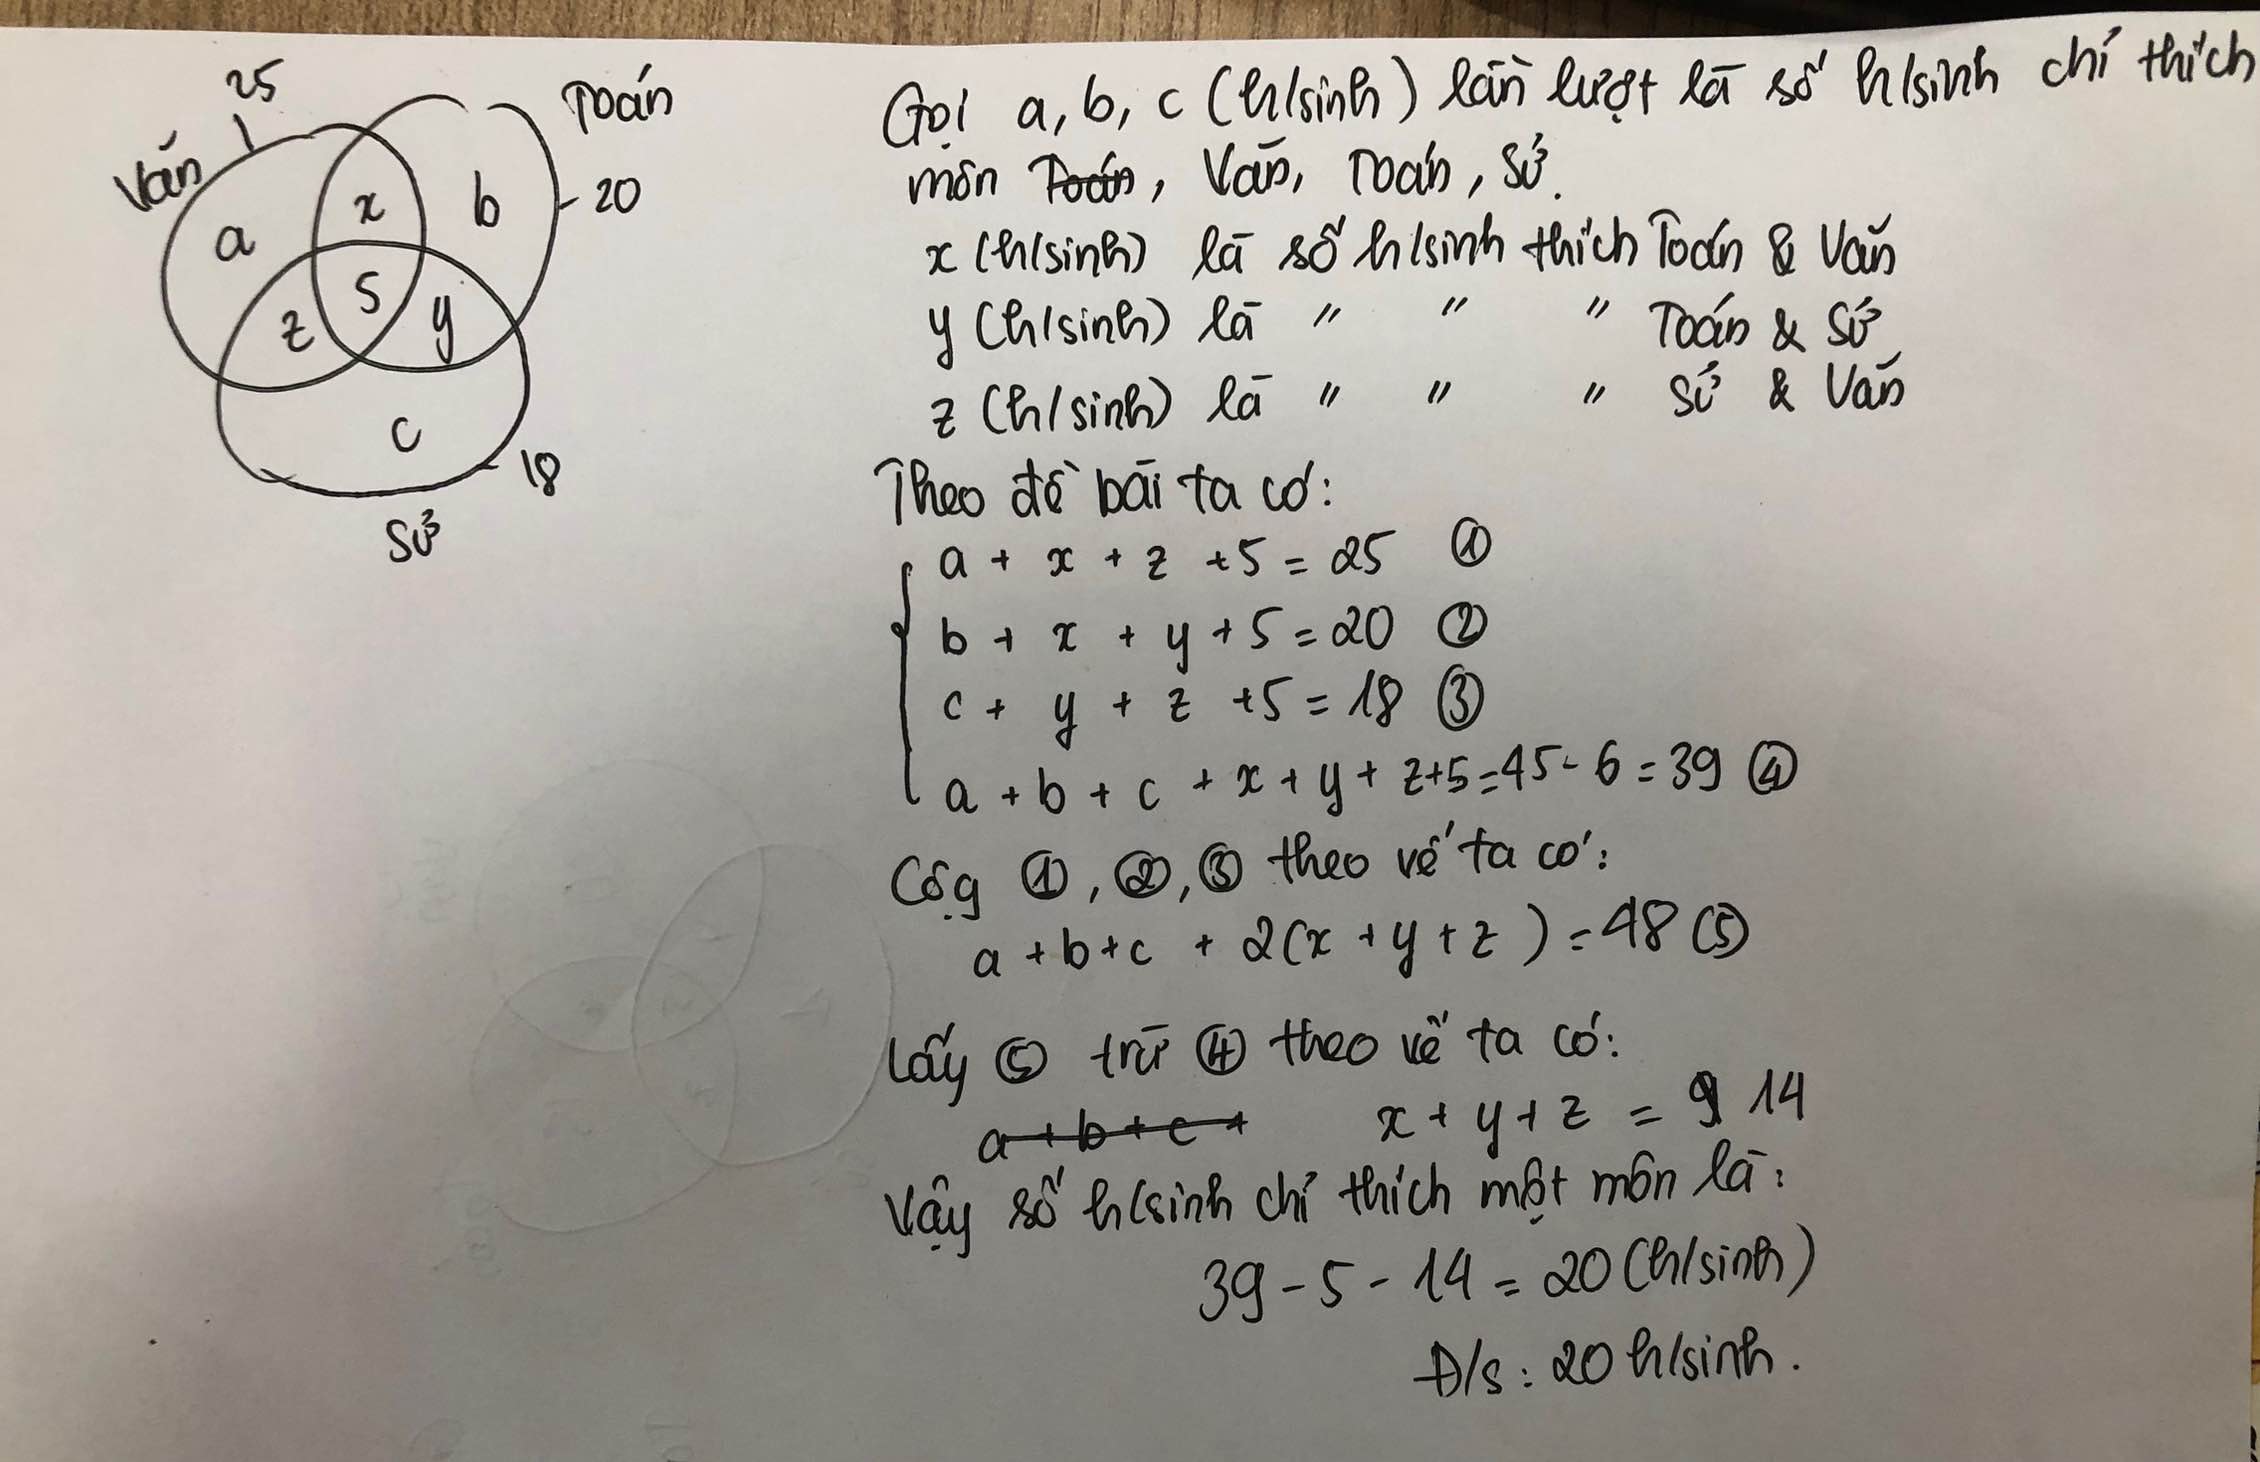 25
Văn
Toán
20
a
x
b
5
z
y
c
18
Sử
Gọi a, b, c (h/sinh) lần lượt là số h/sinh chỉ thích
môn Toán, Văn, Toán, Sử.
x (h/sinh) là số h/sinh thích Toán & Văn
y (h/sinh) là " " " Toán & Sử
z (h/sinh) là " " " Sử & Văn
Theo đề bài ta có:
a + x + z + 5 = 25 ①
b + x + y + 5 = 20 ②
c + y + z + 5 = 18 ③
a + b + c + x + y + z + 5 = 45 - 6 = 39 ④
Cộg ①, ②, ③ theo vế ta có:
a + b + c + 2(x + y + z) = 48 (5)
Lấy ⑤ trừ ④ theo vế ta có:
a + b + c + x + y + z = 9 14
Vậy số h/sinh chỉ thích một môn là:
39 - 5 - 14 = 20 (h/sinh)
Đ/s: 20 h/sinh.